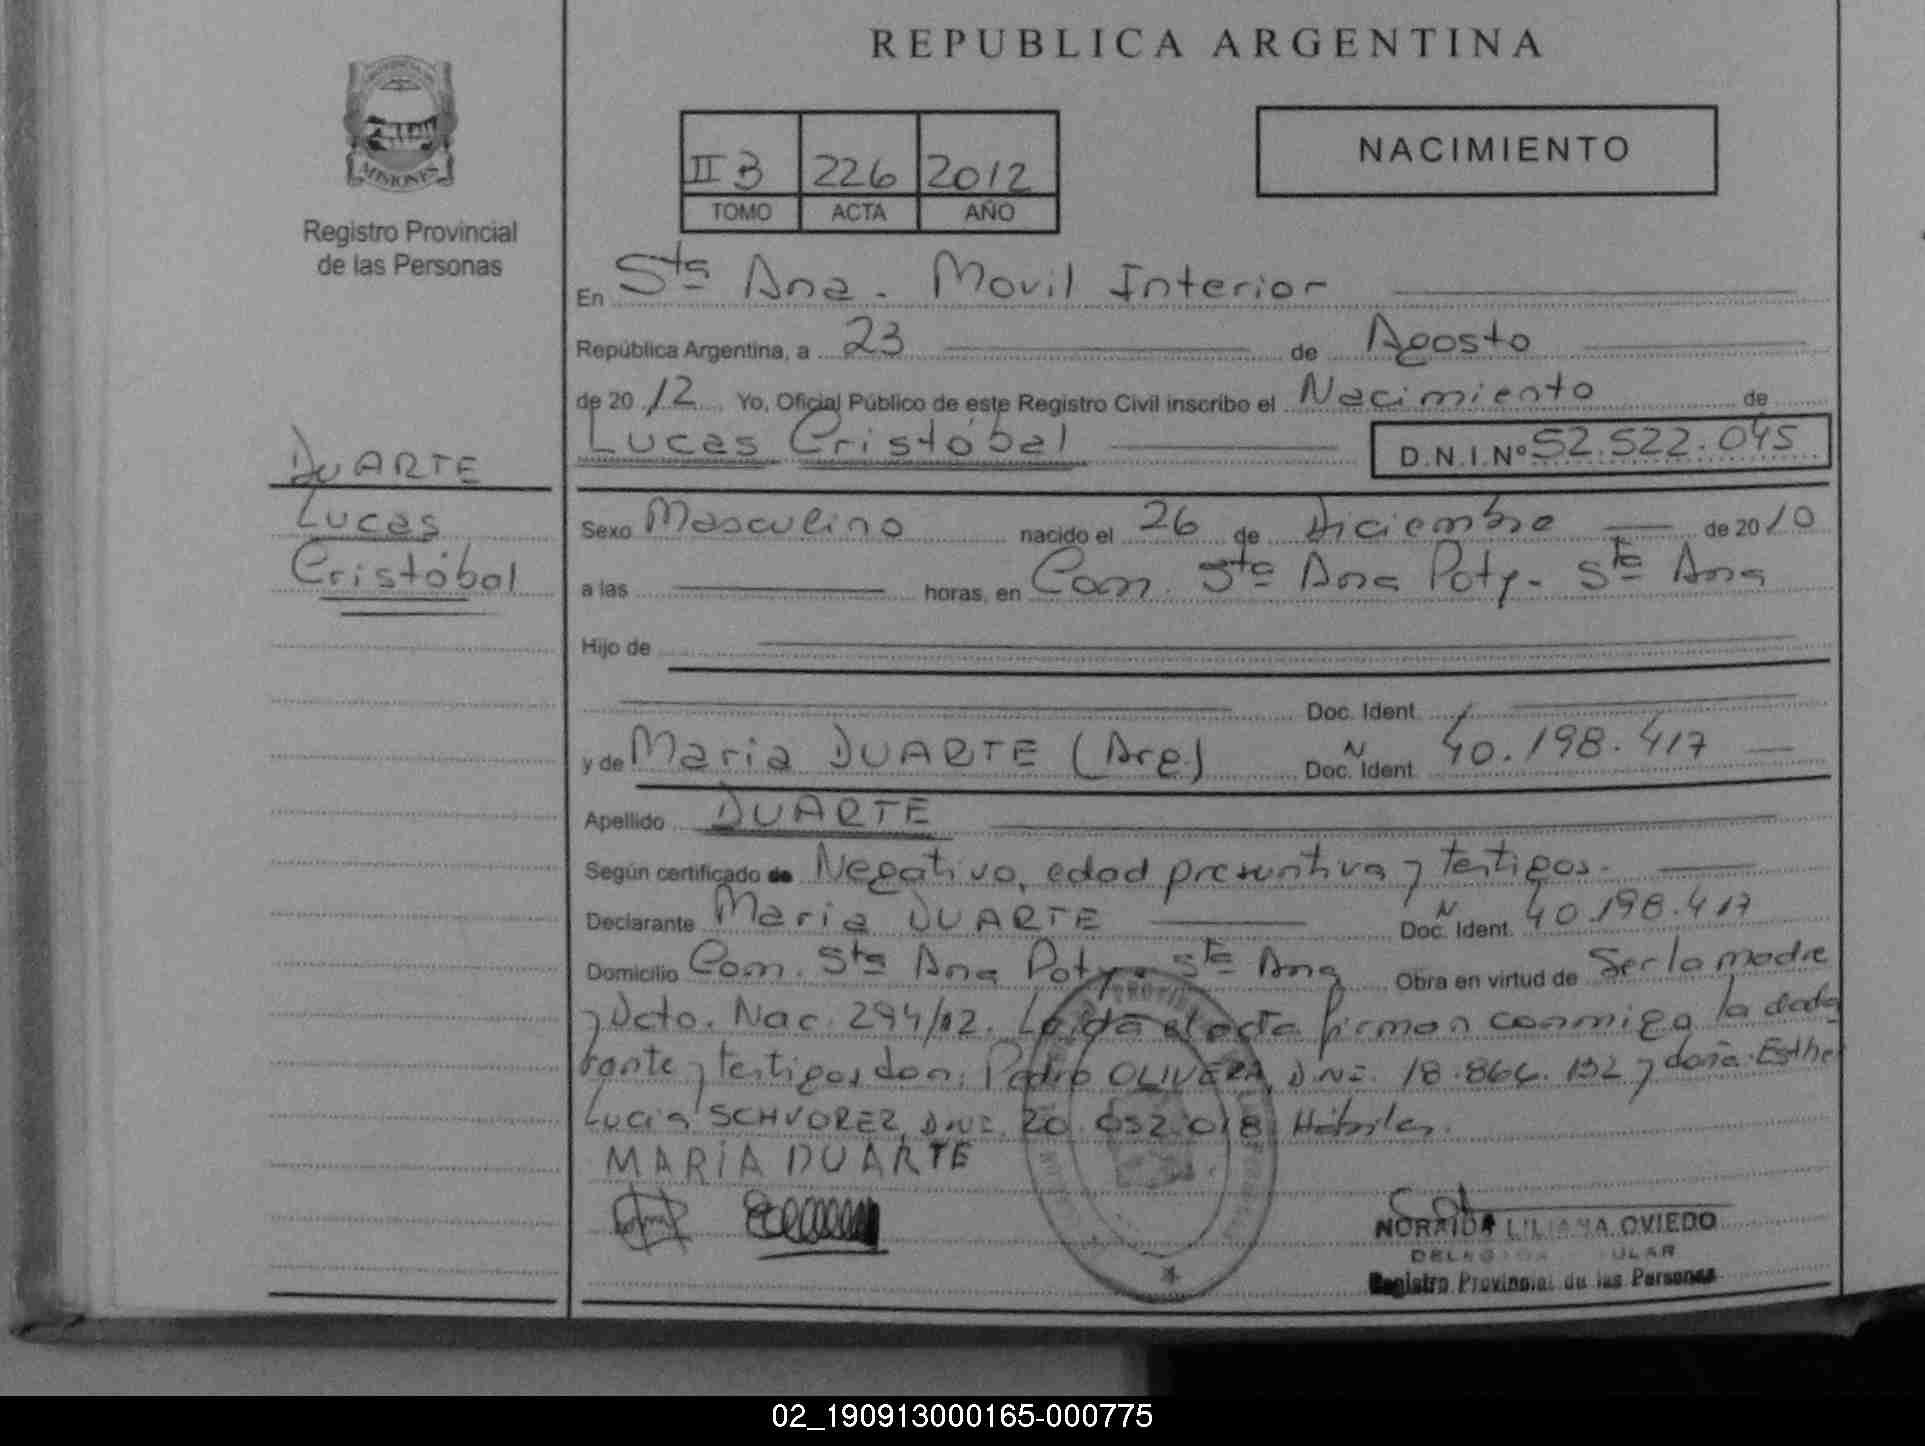 REPUBLICA ARGENTINA
MISIONES
Registro Provincial
de las Personas
II B 226 2012
TOMO ACTA AÑO
NACIMIENTO
En Sta Ana - Movil Interior
República Argentina, a 23 de Agosto
de 20 12 Yo, Oficial Público de este Registro Civil inscribo el Nacimiento de
Lucas Cristóbal D.N.I.Nº 52.522.045
DUARTE
Lucas
Cristóbal
Sexo Masculino nacido el 26 de Diciembre de 20 10
a las horas, en Com. Sta Ana Poty - Sta Ana
Hijo de
Doc. Ident.
y de Maria DUARTE (Arg) Doc. Ident. 40.198.417
Apellido DUARTE
Según certificado de Negativo, edad presuntiva y testigos.
Declarante Maria DUARTE Doc. Ident. 40.198.417
Domicilio Com. Sta Ana Poty - Sta Ana Obra en virtud de Ser la madre
y Dcto. Nac. 294/02. Leída el acta firman conmigo la decla
rante y testigos don: Pedro OLIVERA, DNI. 18.864.132 y doña Esthe
Lucia SCHVOREZ, DNI. 20. 018 Hábiles.
MARIA DUARTE
NORAIDA LILIANA OVIEDO
Registro Provincial de las Personas
02_190913000165-000775